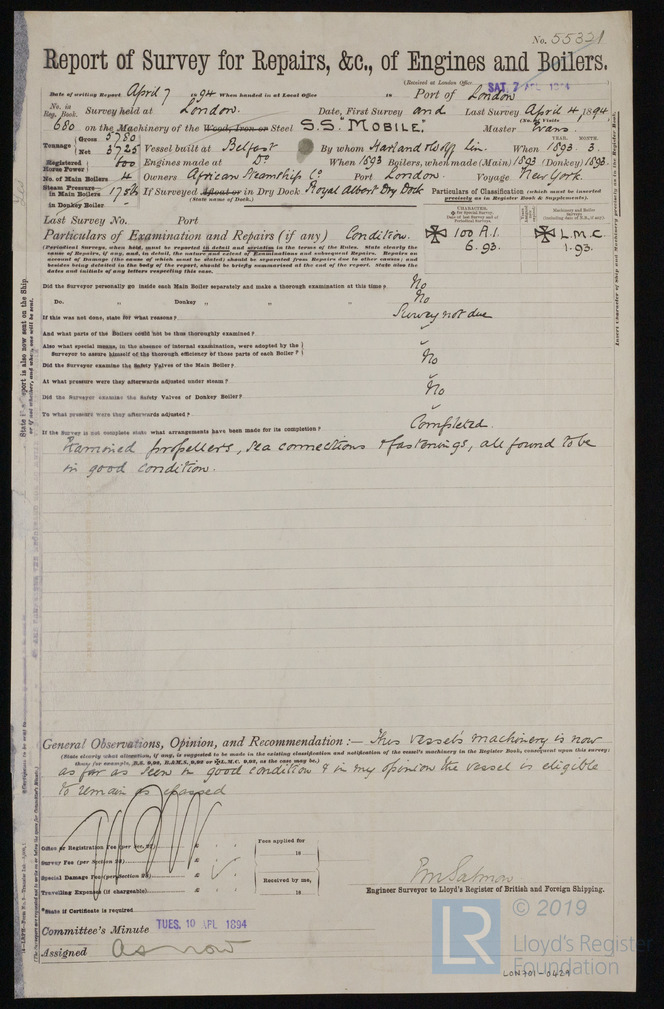 No. 55321
Report of Survey for Repairs, &c., of Engines and Boilers.
(Received at London Office SAT. 7 APL 1894
Date of writing Report April 7 1894 When handed in at Local Office 18 Port of London
No. in Reg. Book. Survey held at London. Date, First Survey and Last Survey April 4, 1894
(No. of Visits
680 on the Machinery of the Wood, Iron or Steel S.S. "MOBILE." Master Evans.
Tonnage Gross 5780 Net 3725 Vessel built at Belfast By whom Harland & Wolff Lim. When YEAR. 1893. MONTH. 3.
Registered Horse Power 600 Engines made at Do When 1893 Boilers, when made (Main) 1893 (Donkey) 1893
No. of Main Boilers 4 Owners African Steamship Co Port London. Voyage New York.
Steam Pressure in Main Boilers If Surveyed Afloat or in Dry Dock Royal Albert Dry Dock
(State name of Dock.)
in Donkey Boiler -
Particulars of Classification (which must be inserted precisely as in Register Book & Supplements).
Last Survey No. Port
CHARACTER.
Machinery and Boiler Surveys
100 A.1. 6.93.
L.M.C. 1.93.
Particulars of Examination and Repairs (if any) Condition.
(Periodical Surveys, when held, must be reported in detail and seriatim in the terms of the Rules. State clearly the
cause of Repairs, if any, and, in detail, the nature and extent of Examinations and subsequent Repairs. Repairs on
account of Damage (the cause of which must be stated) should be separated from Repairs due to other causes; and
besides being detailed in the body of the report, should be briefly summarised at the end of the report. State also the
dates and initials of any letters respecting this case.
Did the Surveyor personally go inside each Main Boiler separately and make a thorough examination at this time? No
Do. " Donkey " " " No
If this was not done, state for what reasons? Survey not due
And what parts of the Boilers could not be thoroughly examined?
Also what special means, in the absence of internal examination, were adopted by the
Surveyor to assure himself of the thorough efficiency of those parts of each Boiler?
Did the Surveyor examine the Safety Valves of the Main Boiler? No
At what pressure were they afterwards adjusted under steam?
Did the Surveyor examine the Safety Valves of Donkey Boiler? No
To what pressure were they afterwards adjusted?
If the Survey is not complete state what arrangements have been made for its completion? Completed.
Examined propellers, sea connections & fastenings, all found to be
in good condition.
General Observations, Opinion, and Recommendation:— This vessels machinery is now
(State clearly what alteration, if any, is suggested to be made in the existing classification and notification of the vessel's machinery in the Register Book, consequent upon this survey;
as far as seen in good condition & in my opinion the vessel is eligible
to remain as classed
Office or Registration Fee
Survey Fee (per Section 28)
Special Damage Fee (per Section 28)
Travelling Expenses (if chargeable)
Fees applied for
18
Received by me,
18
Engineer Surveyor to Lloyd's Register of British and Foreign Shipping.
*State if Certificate is required
Committee's Minute TUES. 10 APL 1894
Assigned as now
LR © 2019
Lloyd's Register
Foundation
LON701-0429